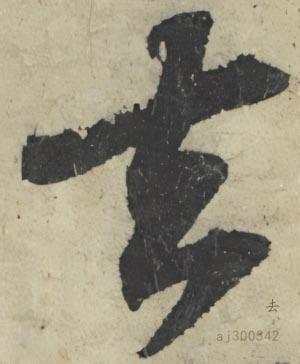 去
去
aj300342